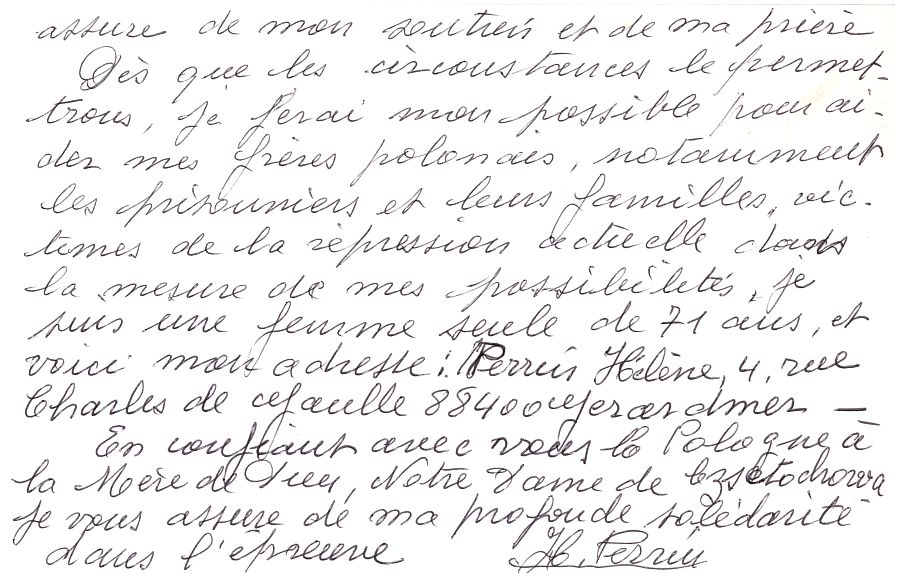 assure de mon soutien et de ma prière
Dès que les circonstances le permet-
trons, je ferai mon possible pour ai-
der mes frères polonais, notamment
les prisonniers et leurs familles, vic-
times de la répression actuelle dans
la mesure de mes possibilités, je
suis une femme seule de 71 ans, et
voici mon adresse : Perrin Hélène, 4, rue
Charles de Gaulle 88400 Gerardmer —
En confiant avec vous la Pologne à
la Mère de Dieu, Notre Dame de Czsetochowa
je vous assure de ma profonde solidarité
dans l'épreuve H. Perrin